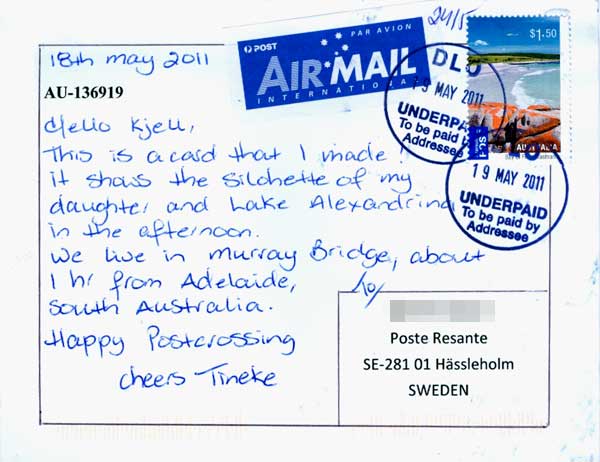 18th may 2011
POST
PAR AVION
AIR MAIL
INTERNATIONAL
24/5
$1.50
AUSTRALIA
DLO
19 MAY 2011
UNDERPAID
To be paid by
Addressee
19 MAY 2011
UNDERPAID
To be paid by
Addressee
AU-136919
Hello Kjell,
This is a card that I made!
it shows the silchette of my
daughter and Lake Alexandrina
in the afternoon.
We live in Murray Bridge, about
1 hr from Adelaide,
South Australia.
Happy Postcrossing
cheers Tineke
to/
Poste Resante
SE-281 01 Hässleholm
SWEDEN